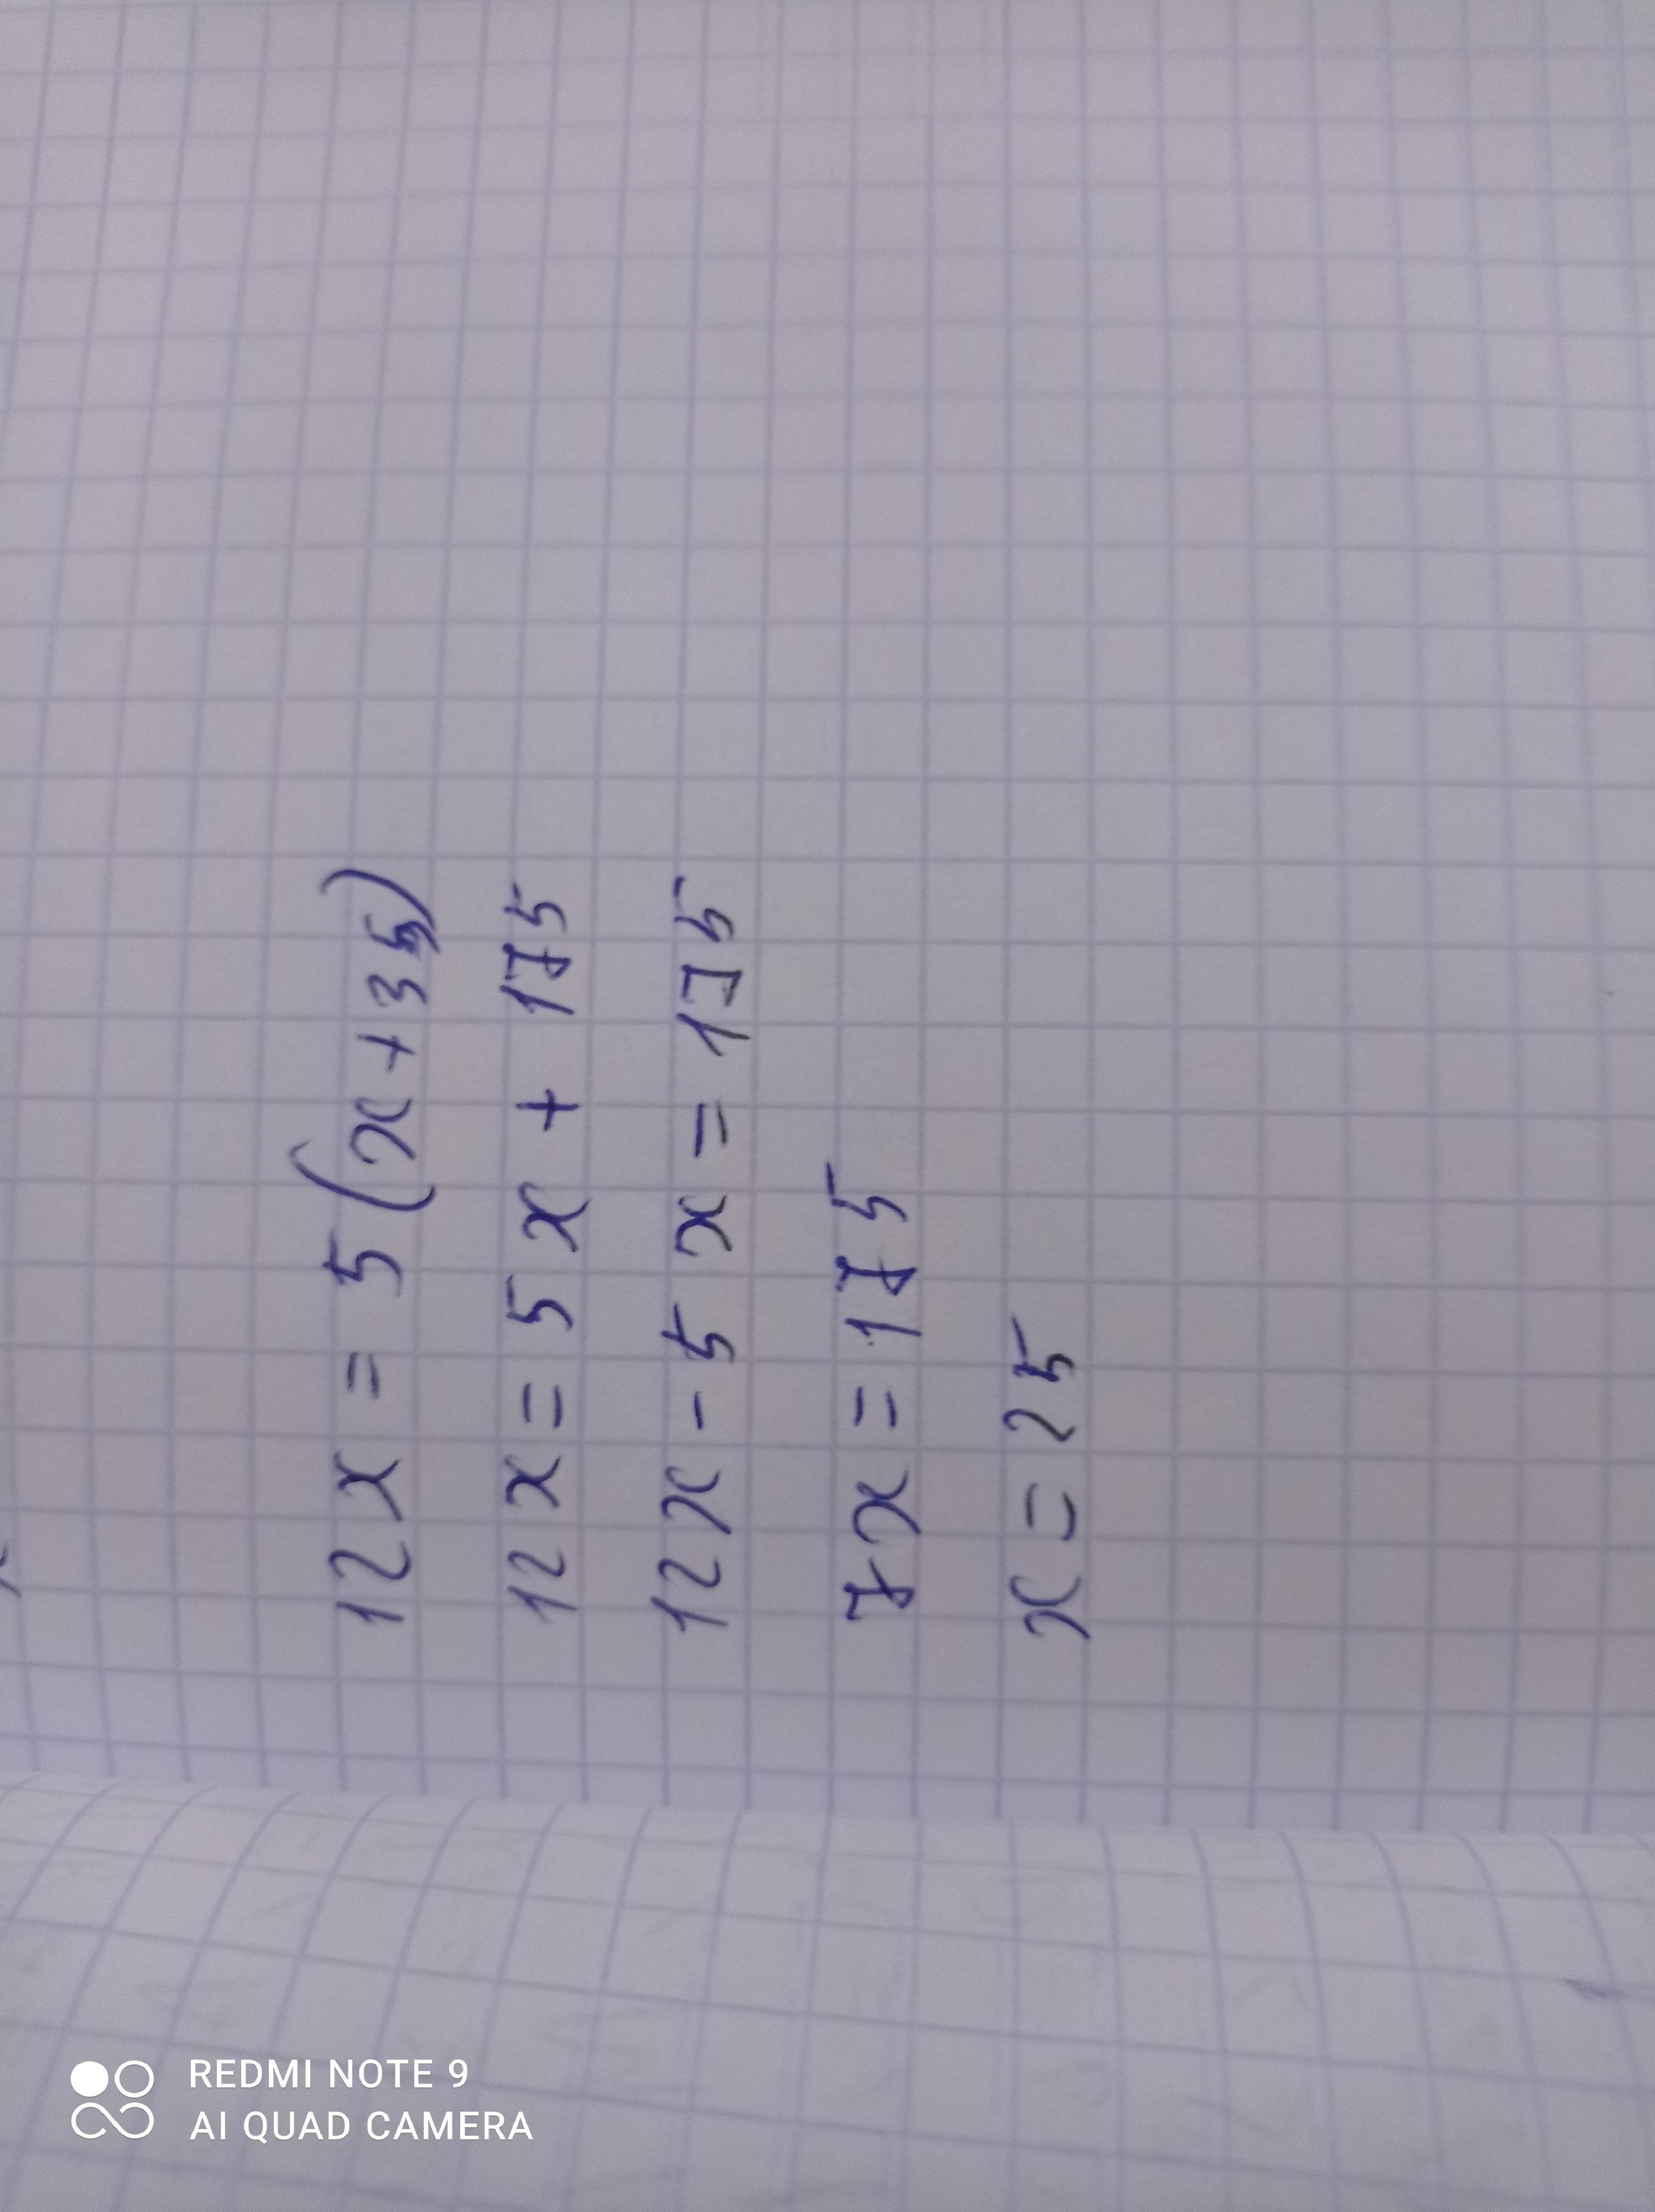 12x = 5(x+35)
12x = 5x + 175
12x - 5x = 175
7x = 175
x = 25
REDMI NOTE 9
AI QUAD CAMERA